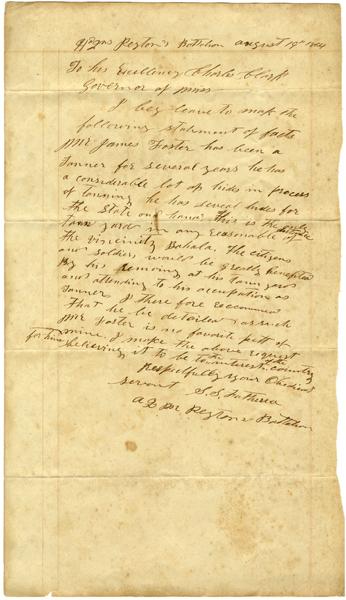 Hdqrs Peyton's Battalion august 19th 1864
To his Excellency Charles Clark
Governor of Miss
I beg leave to mak the
following statement of facts
Mr James Foster has been a
Tanner for several years he has
a considerable lot of hides in process
of tanning he has seveal hides for
the State on hand this is the only
tann yard in any reasonable distance of
the viscinity Bahala. The citizens
and soldiers would be greatly benefited
By his remaning at his tann yard
and attending to his occupation as
Tanner I there fore reccommend
That he be detailed as such
Mr Foster is no favorite pett of
mine I make the above request
for him believing it to be to the interest of the country
Respectfully your Obedient
servant S. S.
of Peytons Battalion